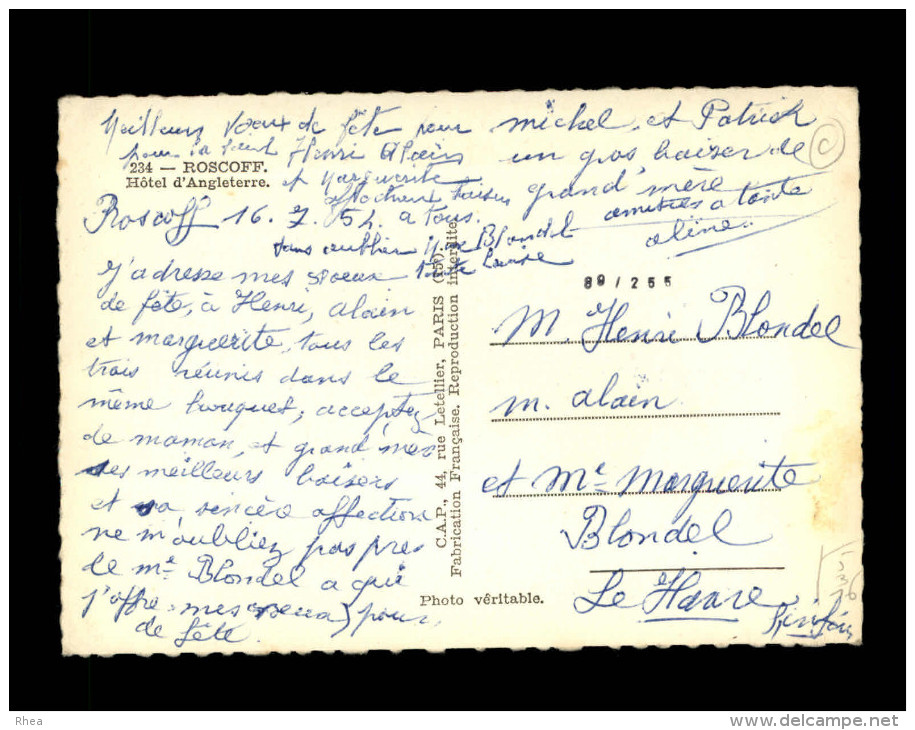 Meilleurs Voeux de fête pour
pour la Saint Henri Alain
et Marguerite
affectueux baisers
a tous.
michel et Patrick
un gros baiser de
grand'mère
amitiés a tante
aline..
234 — ROSCOFF.
Hôtel d'Angleterre.
Roscoff 16. 7. 54.
sans oublier Me Blondel
tante Louise
J'adresse mes voeux
de fête, à Henri, alain
et marguerite, tous les
trois réunis dans le
même bouquet; acceptez
de maman, et grand'mère
ses meilleurs baisers
et sa sincère affection
ne m'oubliez pas près
de me Blondel a qui
j'offre mes voeux pour
de fête.
C.A.P., 44, rue Letellier, PARIS (15e)
Fabrication Française. Reproduction interdite.
Photo véritable.
89/255
M. Henri Blondel
m. alain
et Me Marguerite
Blondel
Le Havre
Sinf
C
Rhea
www.delcampe.net